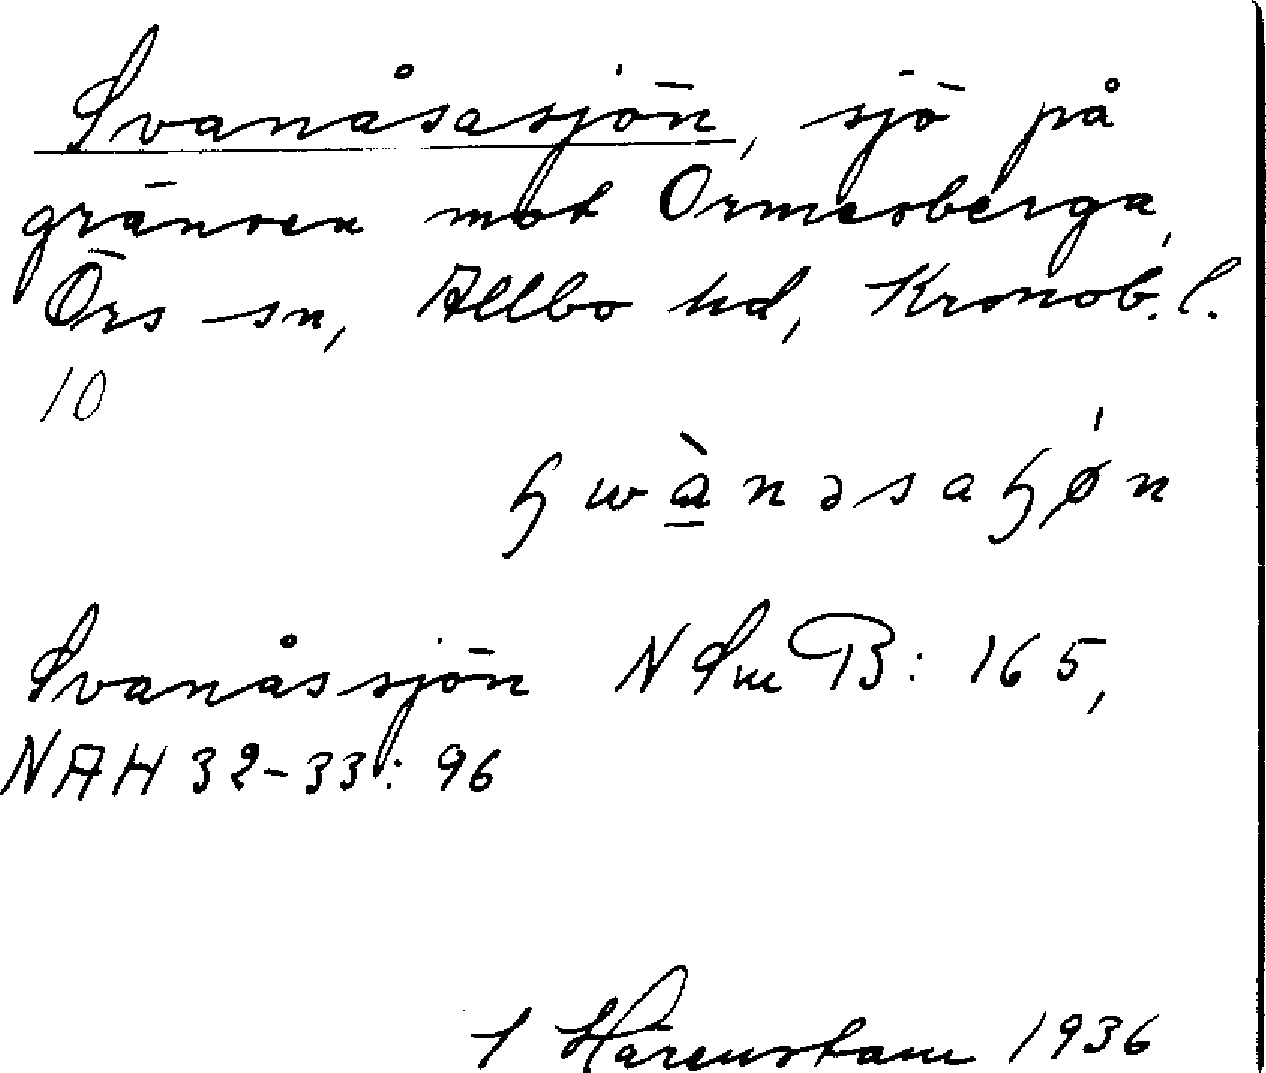 Svanåsasjön, sjö på
gränsen mot Ormesberga,
Örs sn, Allbo hd, Kronob. l.
10
Svanåssjön N Sm B: 165,
NAH 32-33: 96
Härenstam 1936